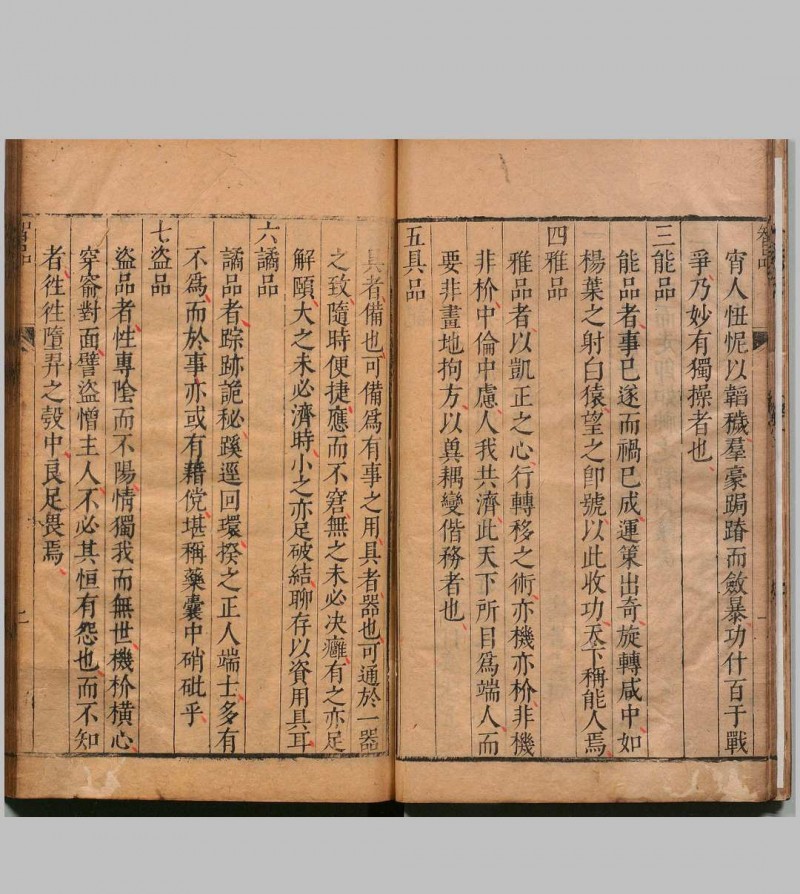 智品
宵人忸怩以韜穢羣豪跼蹐而斂暴功什百于戰
爭乃妙有獨操者也
三能品
能品者事已遂而禍已成運策出奇旋轉咸中如
楊葉之射白猿望之卽號以此收功天下稱能人焉
四雅品
雅品者以凱正之心行轉移之術亦機亦枌非機
非枌中倫中慮人我共濟此天下所目爲端人而
要非畫地拘方以奠耦變偕務者也
五具品
具者備也可備爲有事之用具者器也可通於一器
之致隨時便捷應而不窘無之未必决癰有之亦足
解頤大之未必濟時小之亦足破結聊存以資用具耳
六譎品
譎品者踪跡詭秘蹊逕回環揆之正人端士多有
不爲而於事亦或有藉儻堪稱藥囊中硝砒乎
七盜品
盜品者性專陰而不陽情獨我而無世機枌橫心
穿窬對面譬盜憎主人不必其恒有怨也而不知
者徃徃墮羿之彀中良足畏焉
智品
二